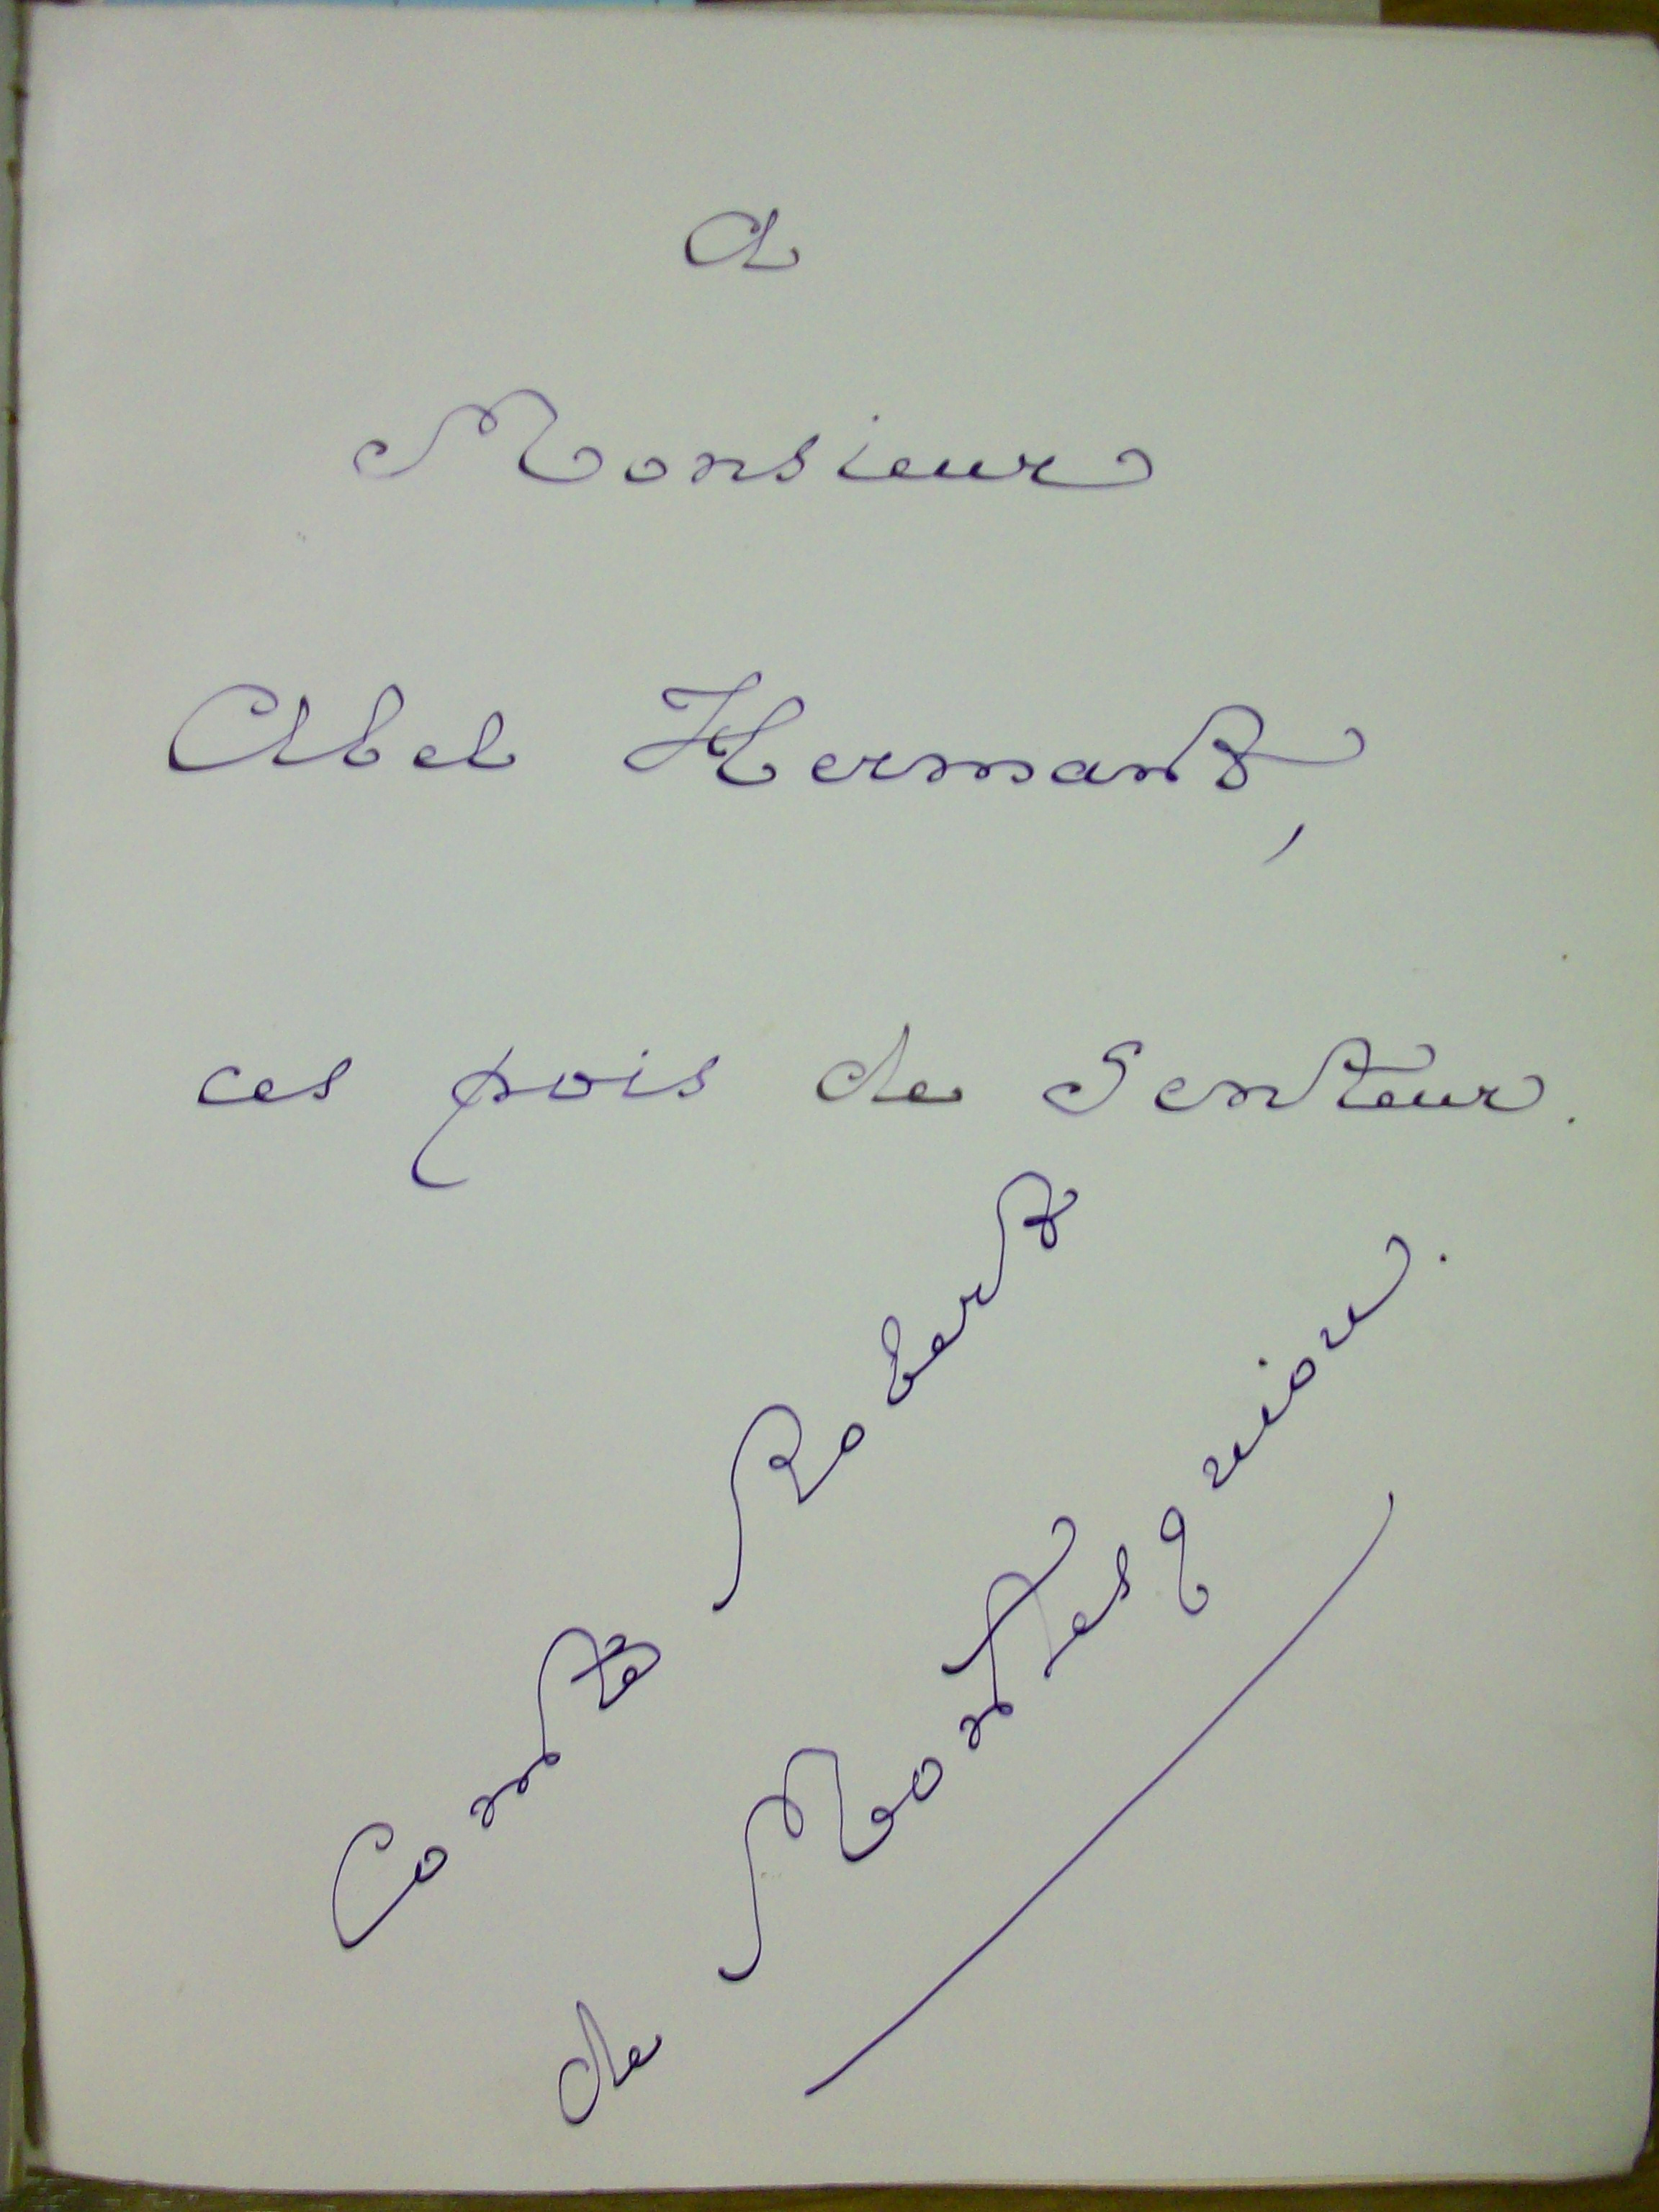 A
Monsieur
Abel Hermant,
ces pois de Senteur.
Comte Robert
de Montesquiou.